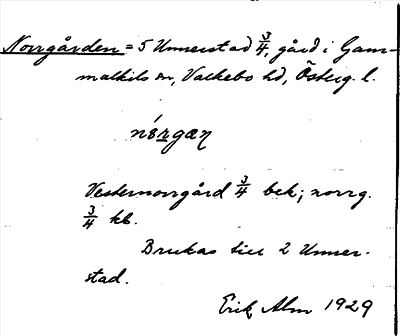 Norrgården = 5 Unnerstad 3/4, gård i Gam-
malkils sn, Valkebo hd, Österg. l.
nǿrgæn
Vesternorrgård 3/4 bek; norrg.
3/4 kb.
Brukas till 2 Unner-
stad.
Erik Alm 1929